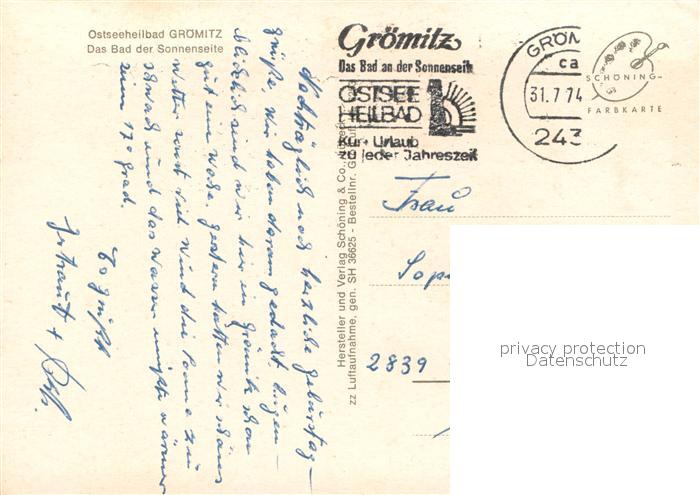 Ostseeheilbad GRÖMITZ
Das Bad der Sonnenseite
Grömitz
Das Bad an der Sonnenseite
OSTSEE
HEILBAD
Kur + Urlaub
zu jeder Jahreszeit
GRÖM
ca
31.7.74
243
SCHÖNING-
FARBKARTE
Nachträglich noch herzliche Geburtstag-
grüße, wir haben daran gedacht. Augen-
blicklich sind wir hier in Grömitz schon
gut eine Woche, gestern hatten wir schönes
Wetter und viel Wind die Sonne zu
schwach und das Wasser müßte wärmer
sein 17 Grad.
Es grüßt
Hersteller und Verlag Schöning & Co.,
zz Luftaufnahme, gen. SH 36625 - Bestellnr.
Frau
2839
privacy protection
Datenschutz